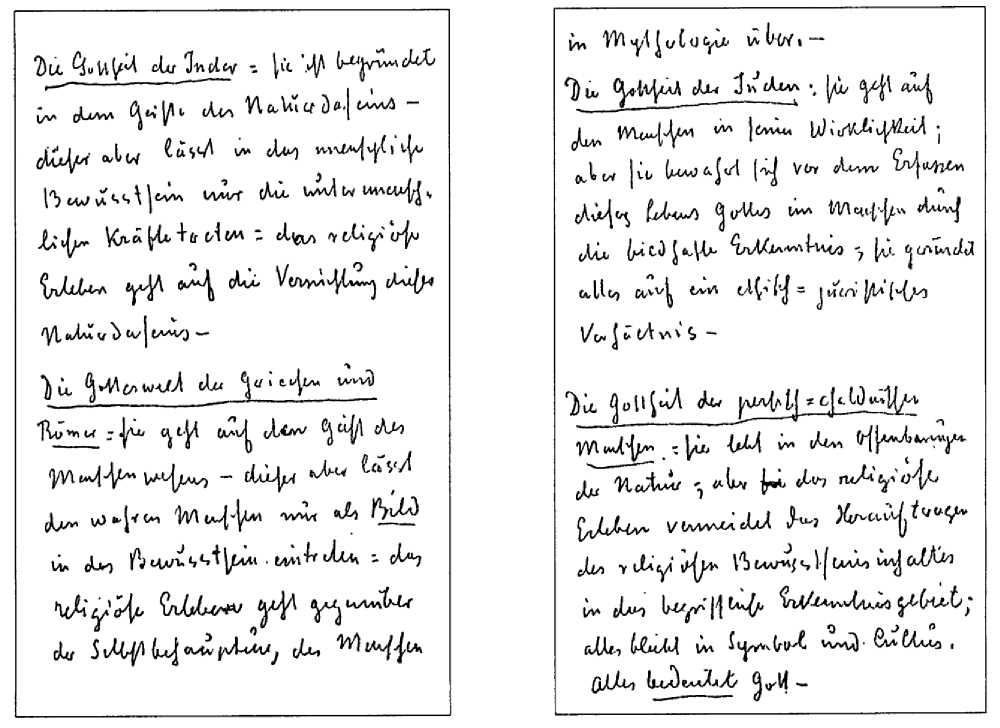 Die Gottheit der Inder = sie ist begründet
in dem Geiste des Naturdaseins –
dieser aber lässt in das menschliche
Bewusstsein nur die untermensch-
lichen Kräfte treten = das religiöse
Erleben geht auf die Vernichtung dieses
Naturdaseins –
Die Götterwelt der Griechen und
Römer = sie geht auf den Geist des
Menschenwesens – dieser aber lässt
den wahren Menschen nur als Bild
in das Bewusstsein eintreten = das
religiöse Erleben geht gegenüber
der Selbstbehauptung des Menschen
in Mythologie über. –
Die Gottheit der Juden: sie geht auf
den Menschen in seiner Wirklichkeit;
aber sie bewahrt sich vor dem Erfassen
dieses Lebens Gottes im Menschen durch
die bildhafte Erkenntnis; sie gründet
alles auf ein ethisch = juristisches
Verhältnis –
Die Gottheit der persisch = chaldäischen
Menschen = sie lebt in den Offenbarungen
der Natur; aber das religiöse
Erleben vermeidet das Herauftragen
des religiösen Bewusstseinsinhaltes
in das begriffliche Erkenntnisgebiet;
alles bleibt in Symbol und Cultus.
alles bedeutet Gott –